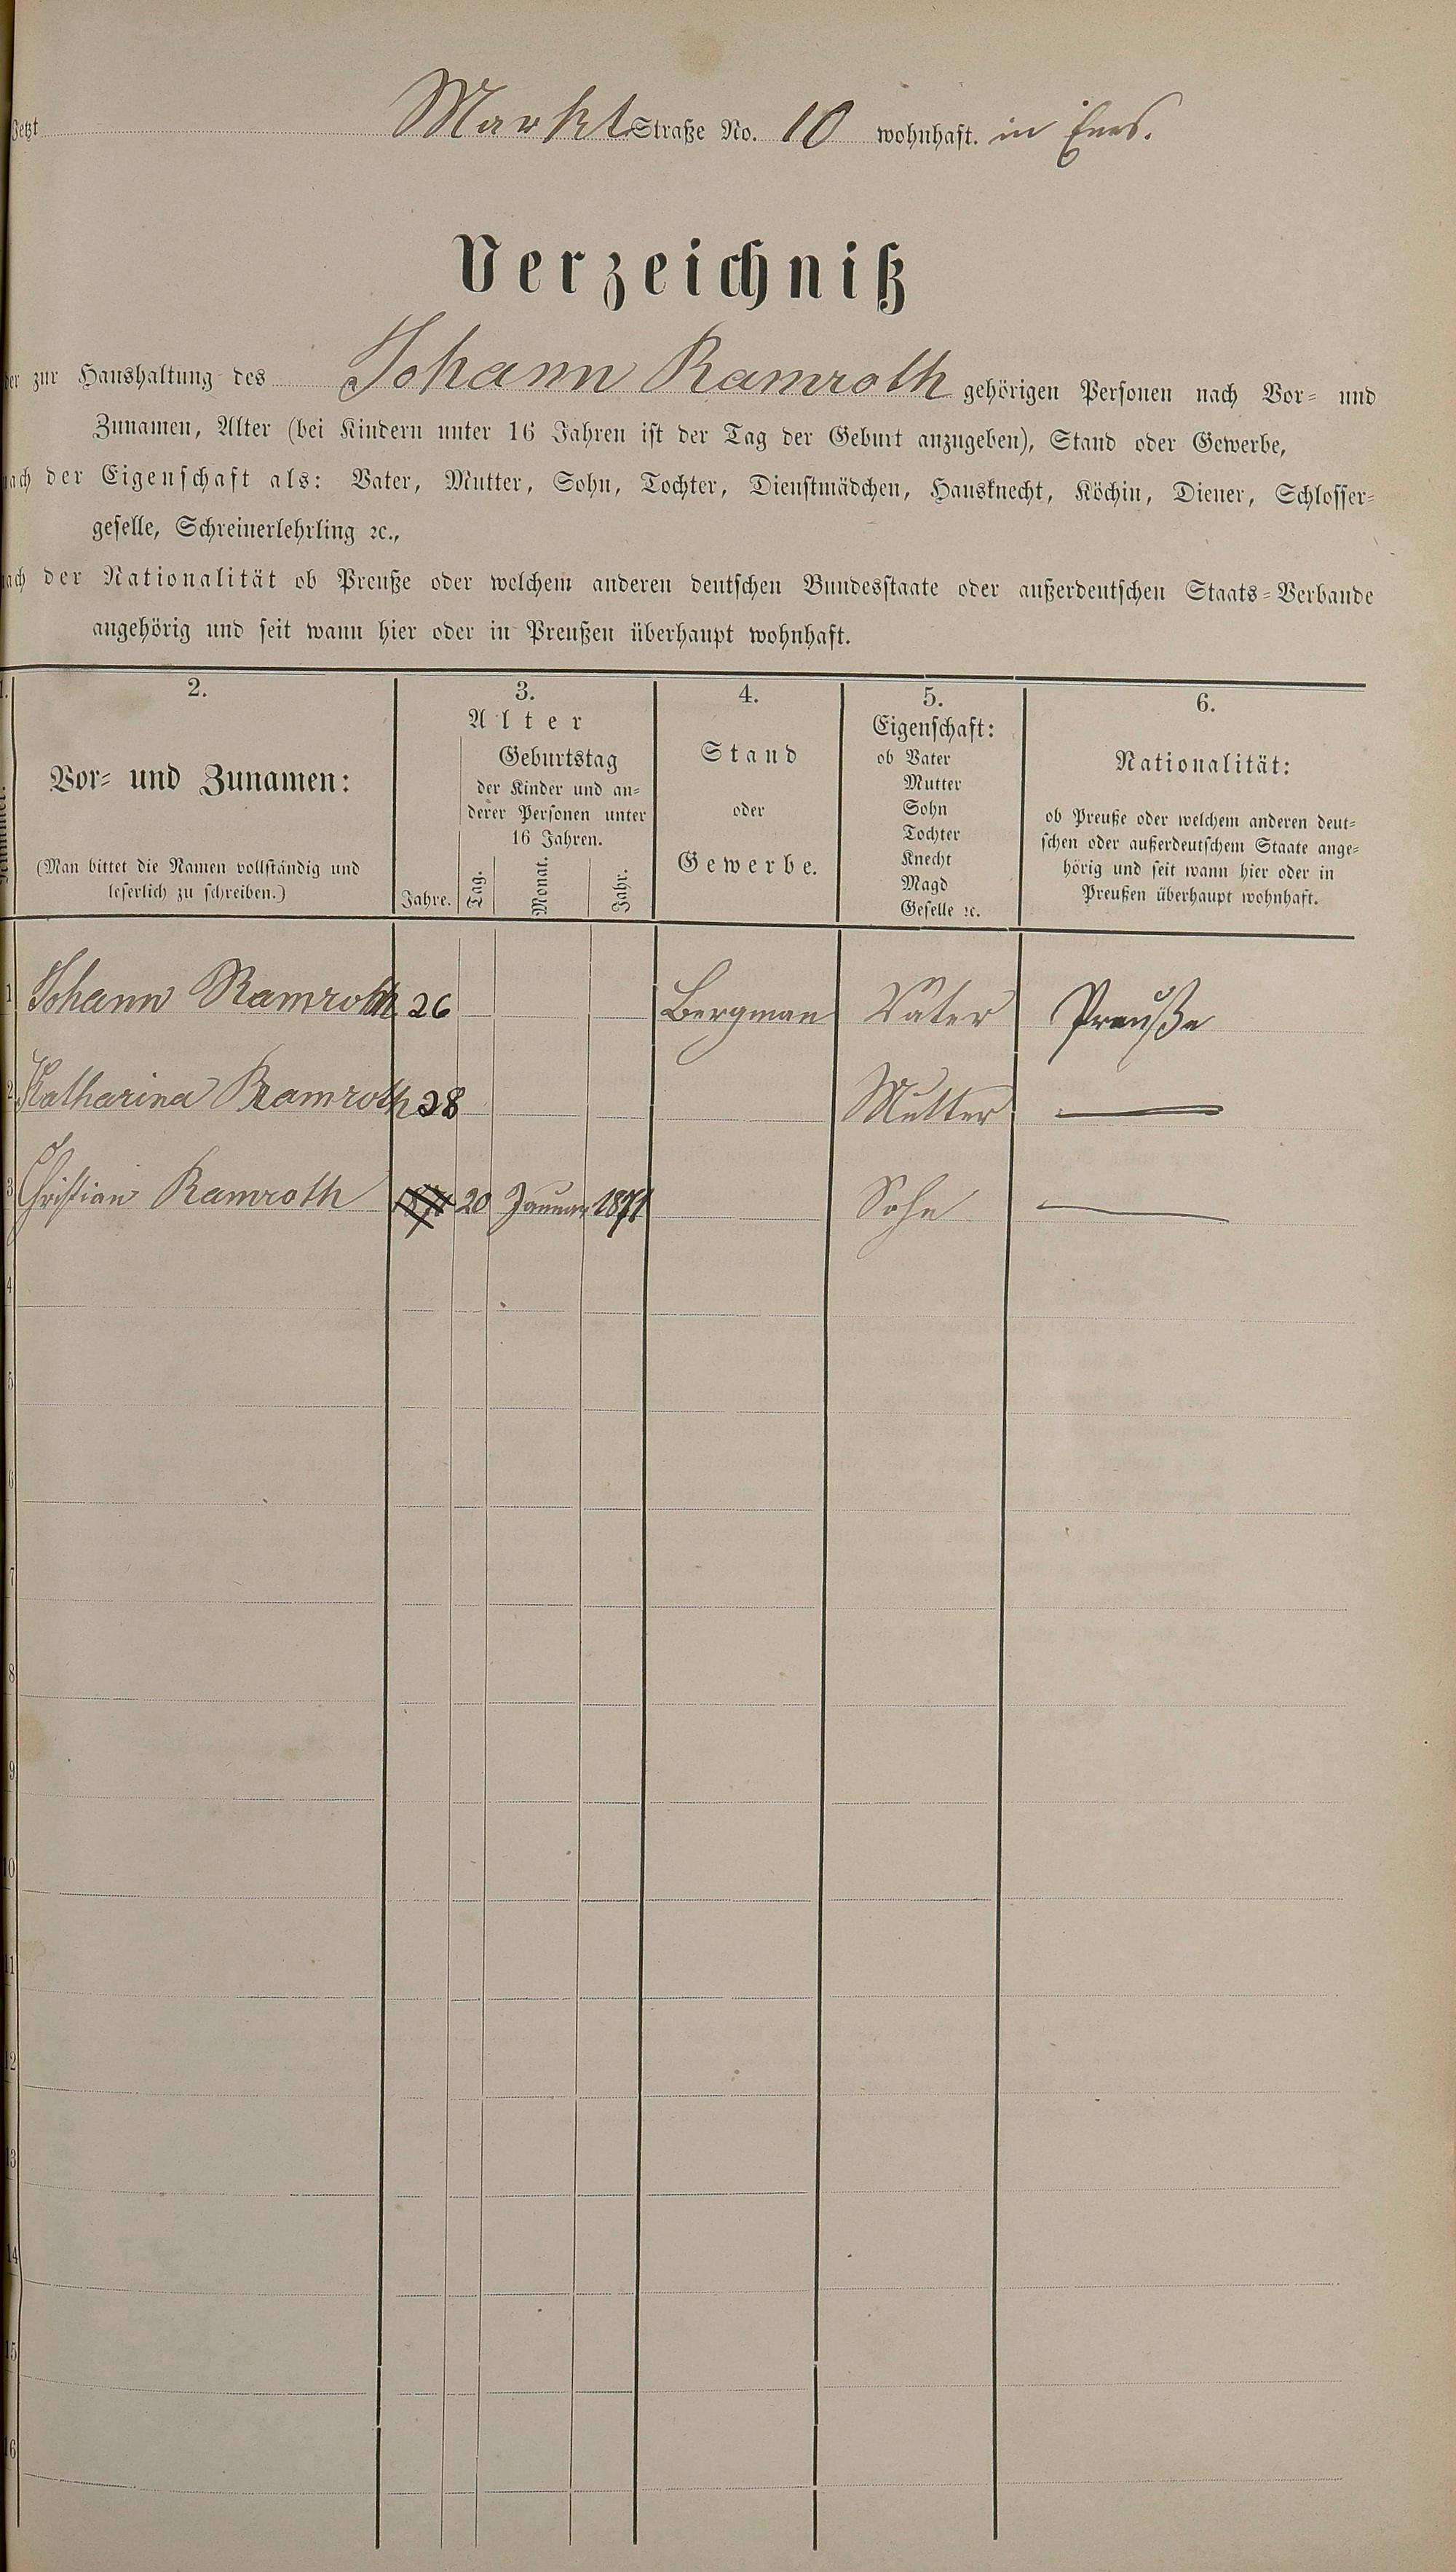 Jetzt Markt Straße No. 10 wohnhaft. in Ems.
Verzeichniß
der zur Haushaltung des Johann Ramroth gehörigen Personen nach Vor- und
Zunamen, Alter (bei Kindern unter 16 Jahren ist der Tag der Geburt anzugeben), Stand oder Gewerbe,
nach der Eigenschaft als: Vater, Mutter, Sohn, Tochter, Dienstmädchen, Hausknecht, Köchin, Diener, Schlosser-
geselle, Schreinerlehrling ꝛc.,
nach der Nationalität ob Preuße oder welchem anderen deutschen Bundesstaate oder außerdeutschen Staats-Verbande
angehörig und seit wann hier oder in Preußen überhaupt wohnhaft.
1.
Nummer.
2.
Vor- und Zunamen:
(Man bittet die Namen vollständig und
leserlich zu schreiben.)
3.
Alter
Jahre.
Geburtstag
der Kinder und an-
derer Personen unter
16 Jahren.
Tag.
Monat.
Jahr.
4.
Stand
oder
Gewerbe.
5.
Eigenschaft:
ob Vater
Mutter
Sohn
Tochter
Knecht
Magd
Geselle ꝛc.
6.
Nationalität:
ob Preuße oder welchem anderen deut-
schen oder außerdeutschem Staate ange-
hörig und seit wann hier oder in
Preußen überhaupt wohnhaft.
1 Johann Ramroth 26 Bergman Vater Preuße
2 Katharina Ramroth 28 Mutter —
3 Christian Ramroth 20 Januar 1871 Sohn —
4
5
6
7
8
9
10
11
12
13
14
15
16